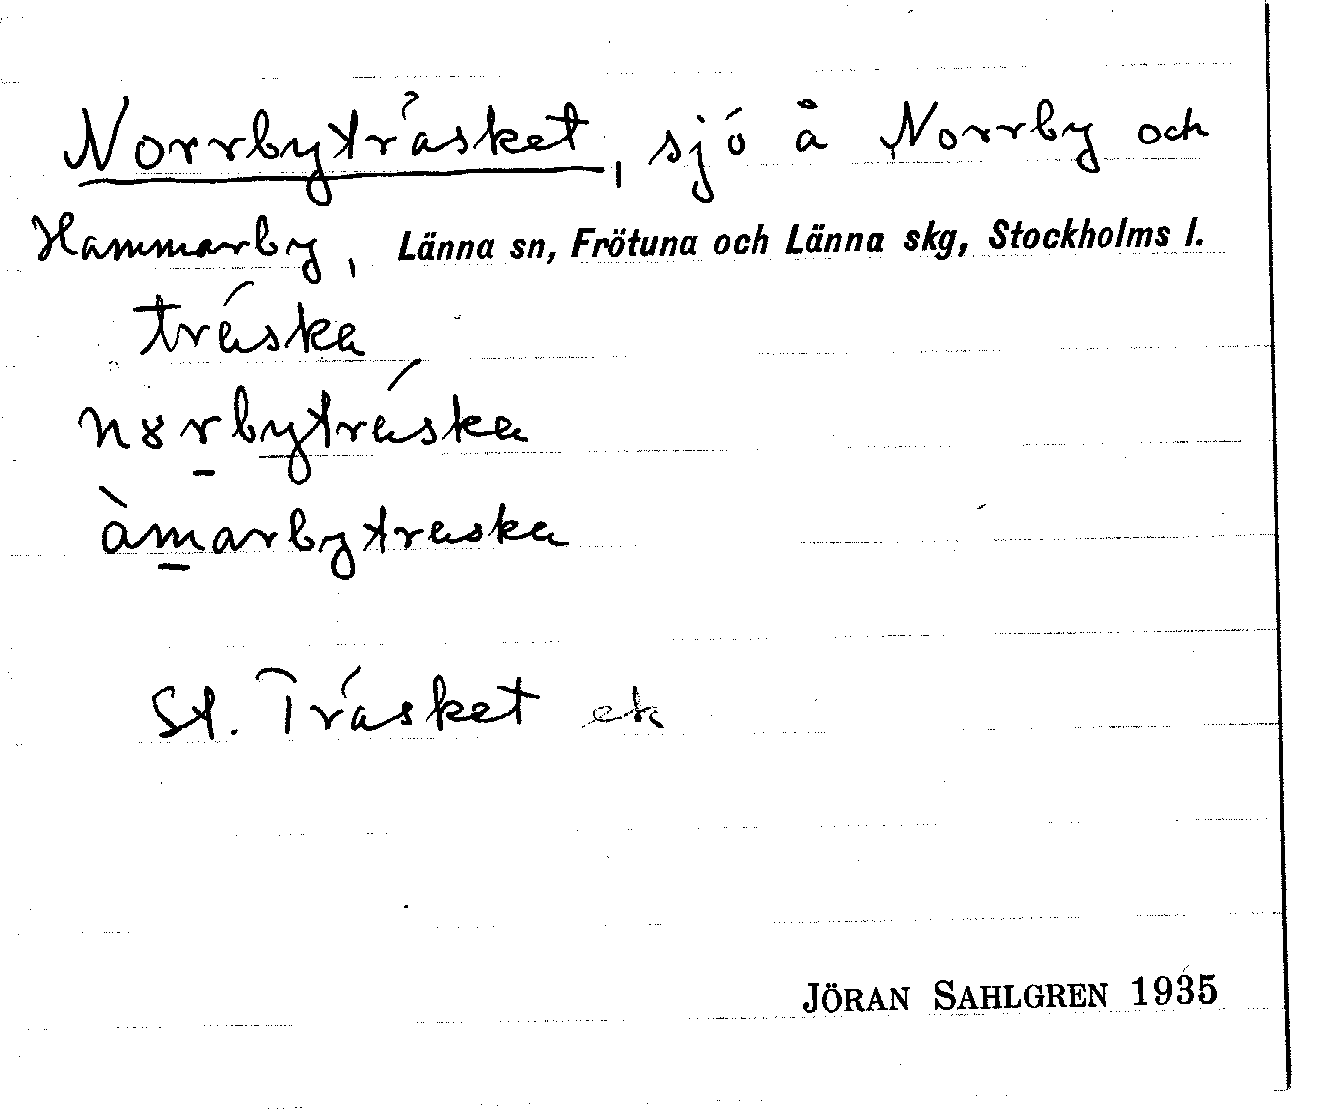 Norrbyträsket, sjö å Norrby och
Hammarby, Länna sn, Frötuna och Länna skg, Stockholms l.
träska
nɤrbyträska
àmarbytraska
St. Träsket ek
JÖRAN SAHLGREN 1935